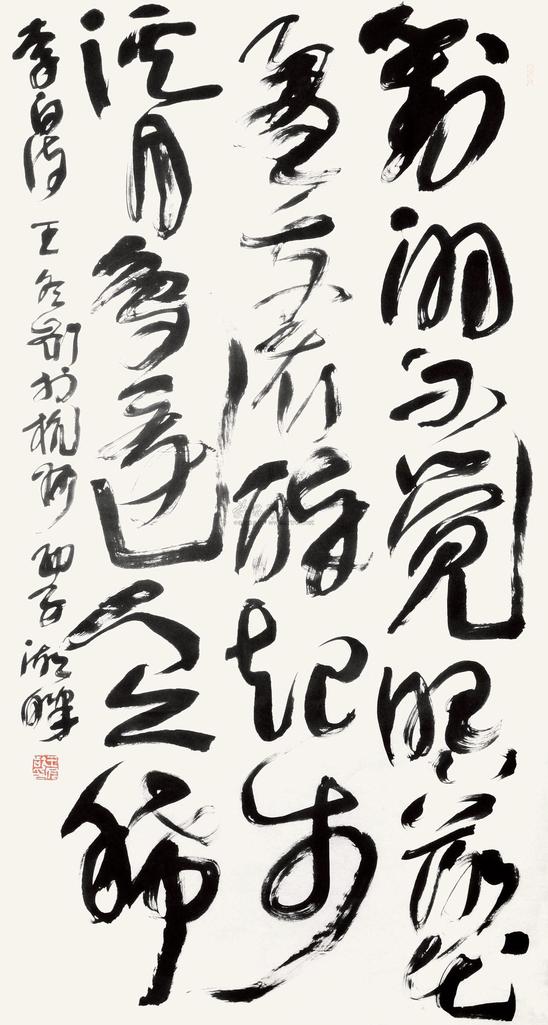 對酒不覺暝落花
盈我衣醉起步
溪月鳥還人亦稀
李白詩王冬齡於杭州西子湖畔